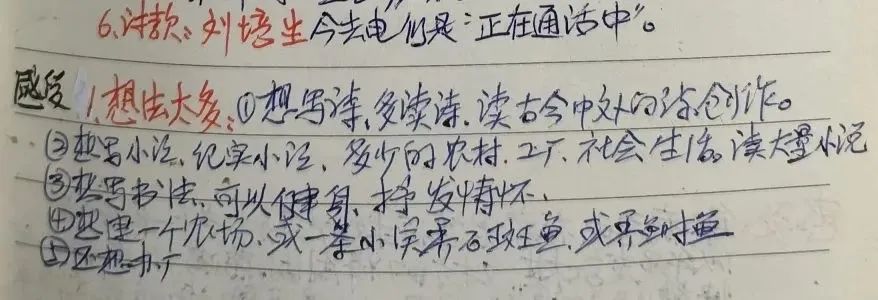 6、讨款：刘培生今去电仍是“正在通话中”。
感受 1、想法太多：①想写诗、多读诗、读古今中外的诗创作。
②想写小说、纪实小说、多少的农村、工厂、社会生活。读大量小说
③想写书法、可以健身、抒发情怀、
④想建一个农场、或一小溪养石斑鱼、或养鱼
⑤还想办厂